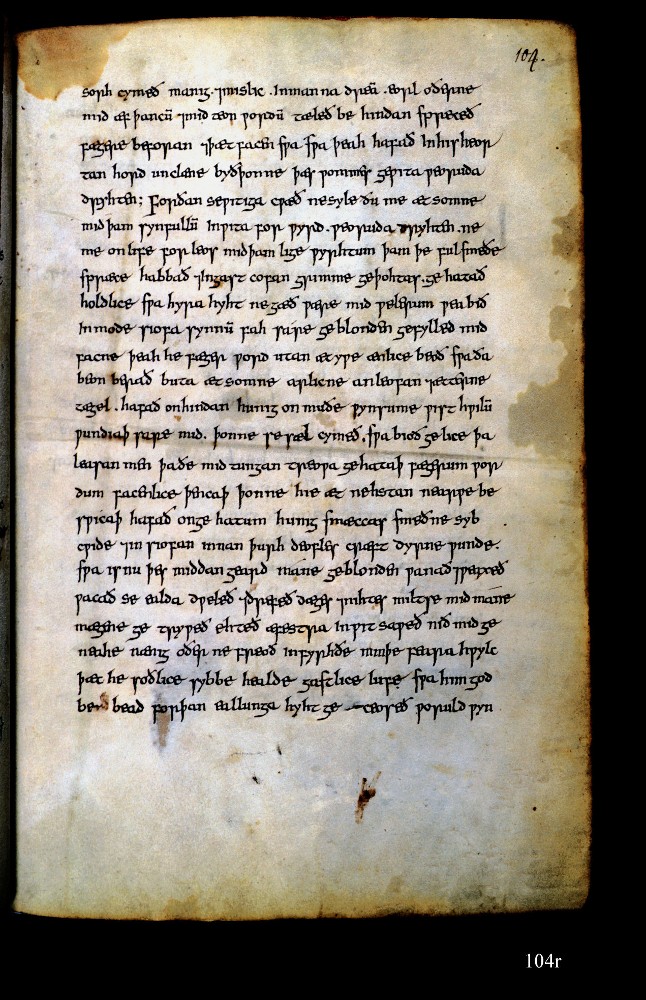 104.
sorh cymeð manig ⁊mislic . Inmanna dreā . eorl oðerne
mid æf þancū ⁊mid teon wordū tæleð be hindan spreceð
fægere beforan ⁊þæt facen swa swa þeah hafað Inhis heor
tan hord unclæne byðþonne þæs wommes gewita weoruda
dryhten; Forðan sewitiga cwæð nesyle ðu me æt somne
mid þam synfullū Inwita for wyrd . weoruda dryhten . ne
me on life for leos midþam lige wyrhtum þam þe ful smeðe
spræce habbað ⁊Ingast cofan grimme geþohtas . ge hatað
holdlice swa hyra hyht ne gæð wære mid welerum wea bið
Inmode siofa synnū fah sare ge blonden gefylled mid
facne þeah he fæger word utan æt ywe ænlice beoð swa ða
beon berað buta æt somne arlicne anleofan ⁊ætterne
tægel . hafað onhindan hunig on muðe wynsume wist hwilū
wundiaþ sare mid . þonne se sæl cymeð . swa bioð ge lice þa
leasan men þaðe mid tungan treowa gehataþ fægerum wor
dum facenlice þencaþ þonne hie æt nehstan nearwe be
swicaþ hafað onge hatum hunig smæccas smeðne syb
cwide ⁊in siofan innan þurh deofles cræft dyrne wunde .
swa is nu þes middan geard mane geblonden wanað ⁊weaxeð
wacað se ealda dweleð ⁊drefeð dæges ⁊nihtes miltse mid mane
mægene ge tryweð ehteð æfestra Inwit saweð nið mid ge
neahe nænig oðer ne freoð infyrhðe nimþe feara hwylc
þæt he soðlice sybbe healde gastlice lufe swa him god
be bead forþan eallunga hyht ge ceoseð woruld wyn
104r